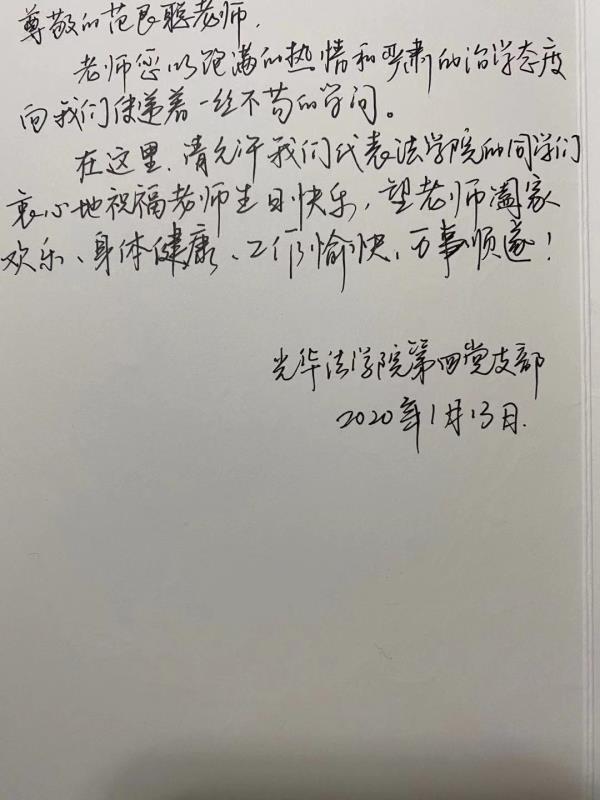 尊敬的范良聪老师,
老师您以饱满的热情和严肃的治学态度
向我们传递着一丝不苟的学问。
在这里,请允许我们代表法学院的同学们
衷心地祝福老师生日快乐,望老师阖家
欢乐、身体健康、工作愉快、万事顺遂!
光华法学院第四党支部
2020年1月13日.